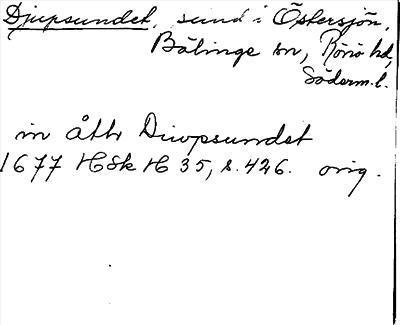 Djupsundet, sund i Östersjön,
Bälinge sn, Rönö hd,
Söderm.l.
in åtbr Diwpsundet
1677 HSk H 35, s. 426. orig.